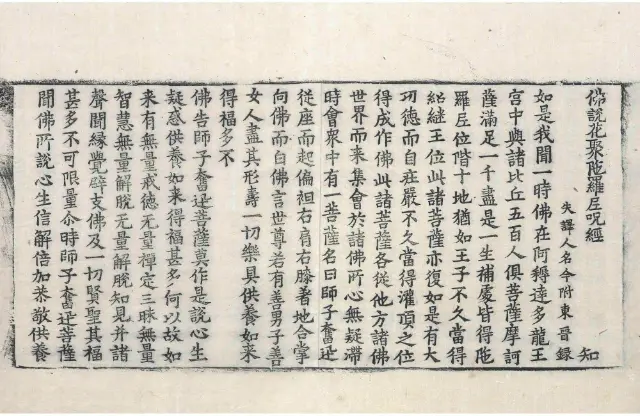 佛說花聚陁羅尼呪經
知
失譯人名今附東晉錄
如是我聞一時佛在阿耨達多龍王
宮中與諸比丘五百人俱菩薩摩訶
薩滿足一千盡是一生補處皆得陁
羅尼位階十地猶如王子不久當得
紹継王位此諸菩薩亦復如是有大
功德而自莊嚴不久當得灌頂之位
得成作佛此諸菩薩各從他方諸佛
世界而来集會於諸佛所心無疑滯
時會衆中有一菩薩名曰師子奮迅
從座而起偏袒右肩右膝著地合掌
向佛而白佛言世尊若有善男子善
女人盡其形壽一切樂具供養如来
得福多不
佛告師子奮迅菩薩莫作是說心生
疑惑供養如来得福甚多何以故如
来有無量戒德无量禪定三昧無量
智慧無量解脫无量解脫知見并諸
聲聞緣覺辟支佛及一切賢聖其福
甚多不可限量尒時師子奮迅菩薩
聞佛所說心生信解倍加恭敬供養